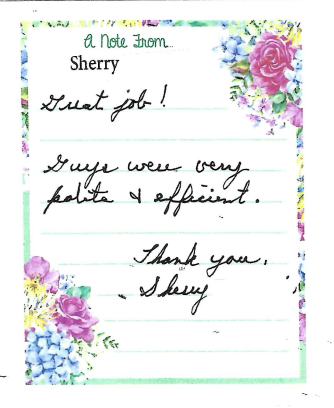 A Note From...
Sherry
Great job!
Guys were very
polite & efficient.
Thank you,
Sherry